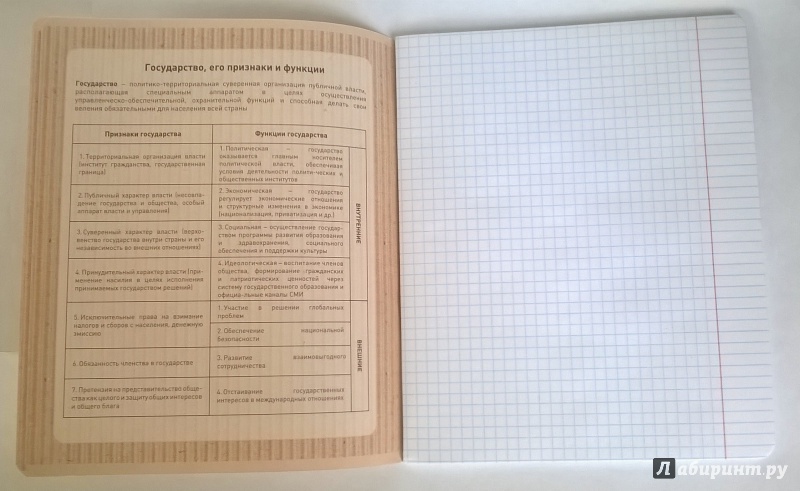 Государство, его признаки и функции
Государство – политико-территориальная суверенная организация публичной власти,
располагающая специальным аппаратом в целях осуществления
управленческо-обеспечительной, охранительной функций и способная делать свои
веления обязательными для населения всей страны
Признаки государства
Функции государства
1. Территориальная организация власти
(институт гражданства, государственная
граница)
1. Политическая – государство
оказывается главным носителем
политической власти, обеспечивая
условия деятельности полити-ческих и
общественных институтов
2. Публичный характер власти (несовпа-
дение государства и общества, особый
аппарат власти и управления)
2. Экономическая – государство
регулирует экономические отношения
и структурные изменения в экономике
(национализация, приватизация и др.)
3. Суверенный характер власти (верхо-
венство государства внутри страны и его
независимость во внешних отношениях)
3. Социальная – осуществление государ-
ством программы развития образования
и здравоохранения, социального
обеспечения и поддержки культуры
4. Принудительный характер власти (при-
менение насилия в целях исполнения
принимаемых государством решений)
4. Идеологическая – воспитание членов
общества, формирование гражданских
и патриотических ценностей через
систему государственного образования и
официа-льные каналы СМИ
ВНУТРЕННИЕ
5. Исключительные права на взимание
налогов и сборов с населения, денежную
эмиссию
1. Участие в решении глобальных
проблем
2. Обеспечение национальной
безопасности
6. Обязанность членства в государстве
3. Развитие взаимовыгодного
сотрудничества
7. Претензия на представительство обще-
ства как целого и защиту общих интересов
и общего блага
4. Отстаивание государственных
интересов в международных отношениях
ВНЕШНИЕ
Лабиринт.ру